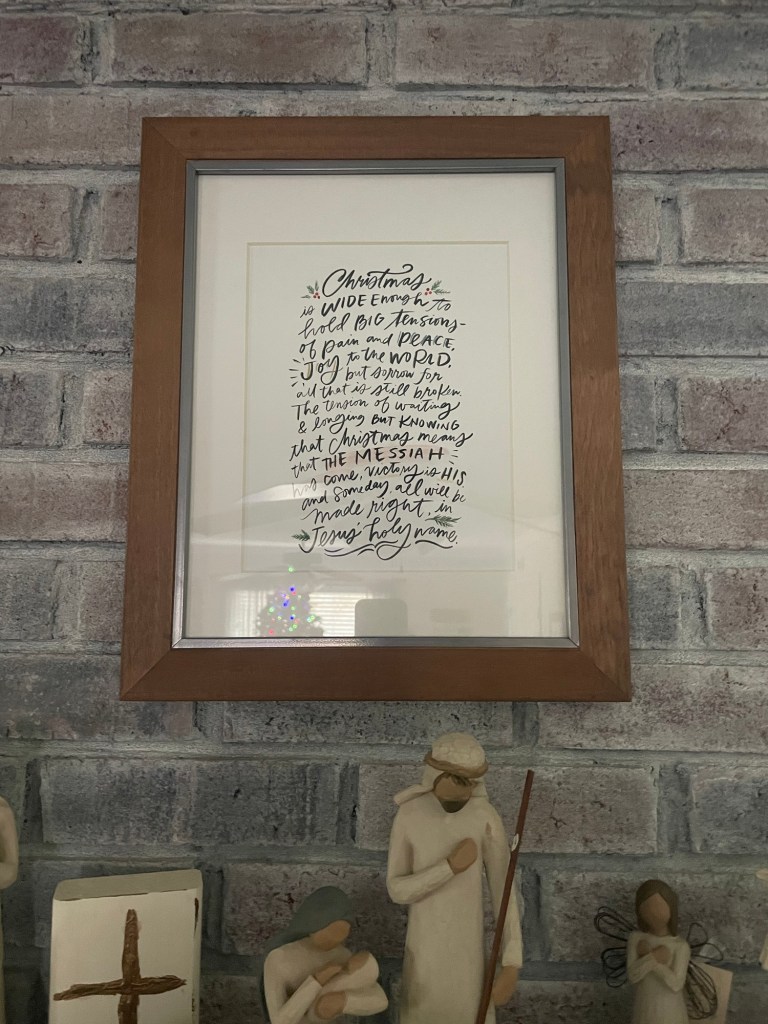 Christmas
is WIDE Enough to
hold BIG tensions-
of pain and PEACE,
JOY to the WORLD,
but sorrow for
all that is still broken.
The tension of waiting
& longing BUT KNOWING
that Christmas means
that THE MESSIAH
has come, victory is HIS,
and someday, all will be
made right, in
Jesus' holy name.